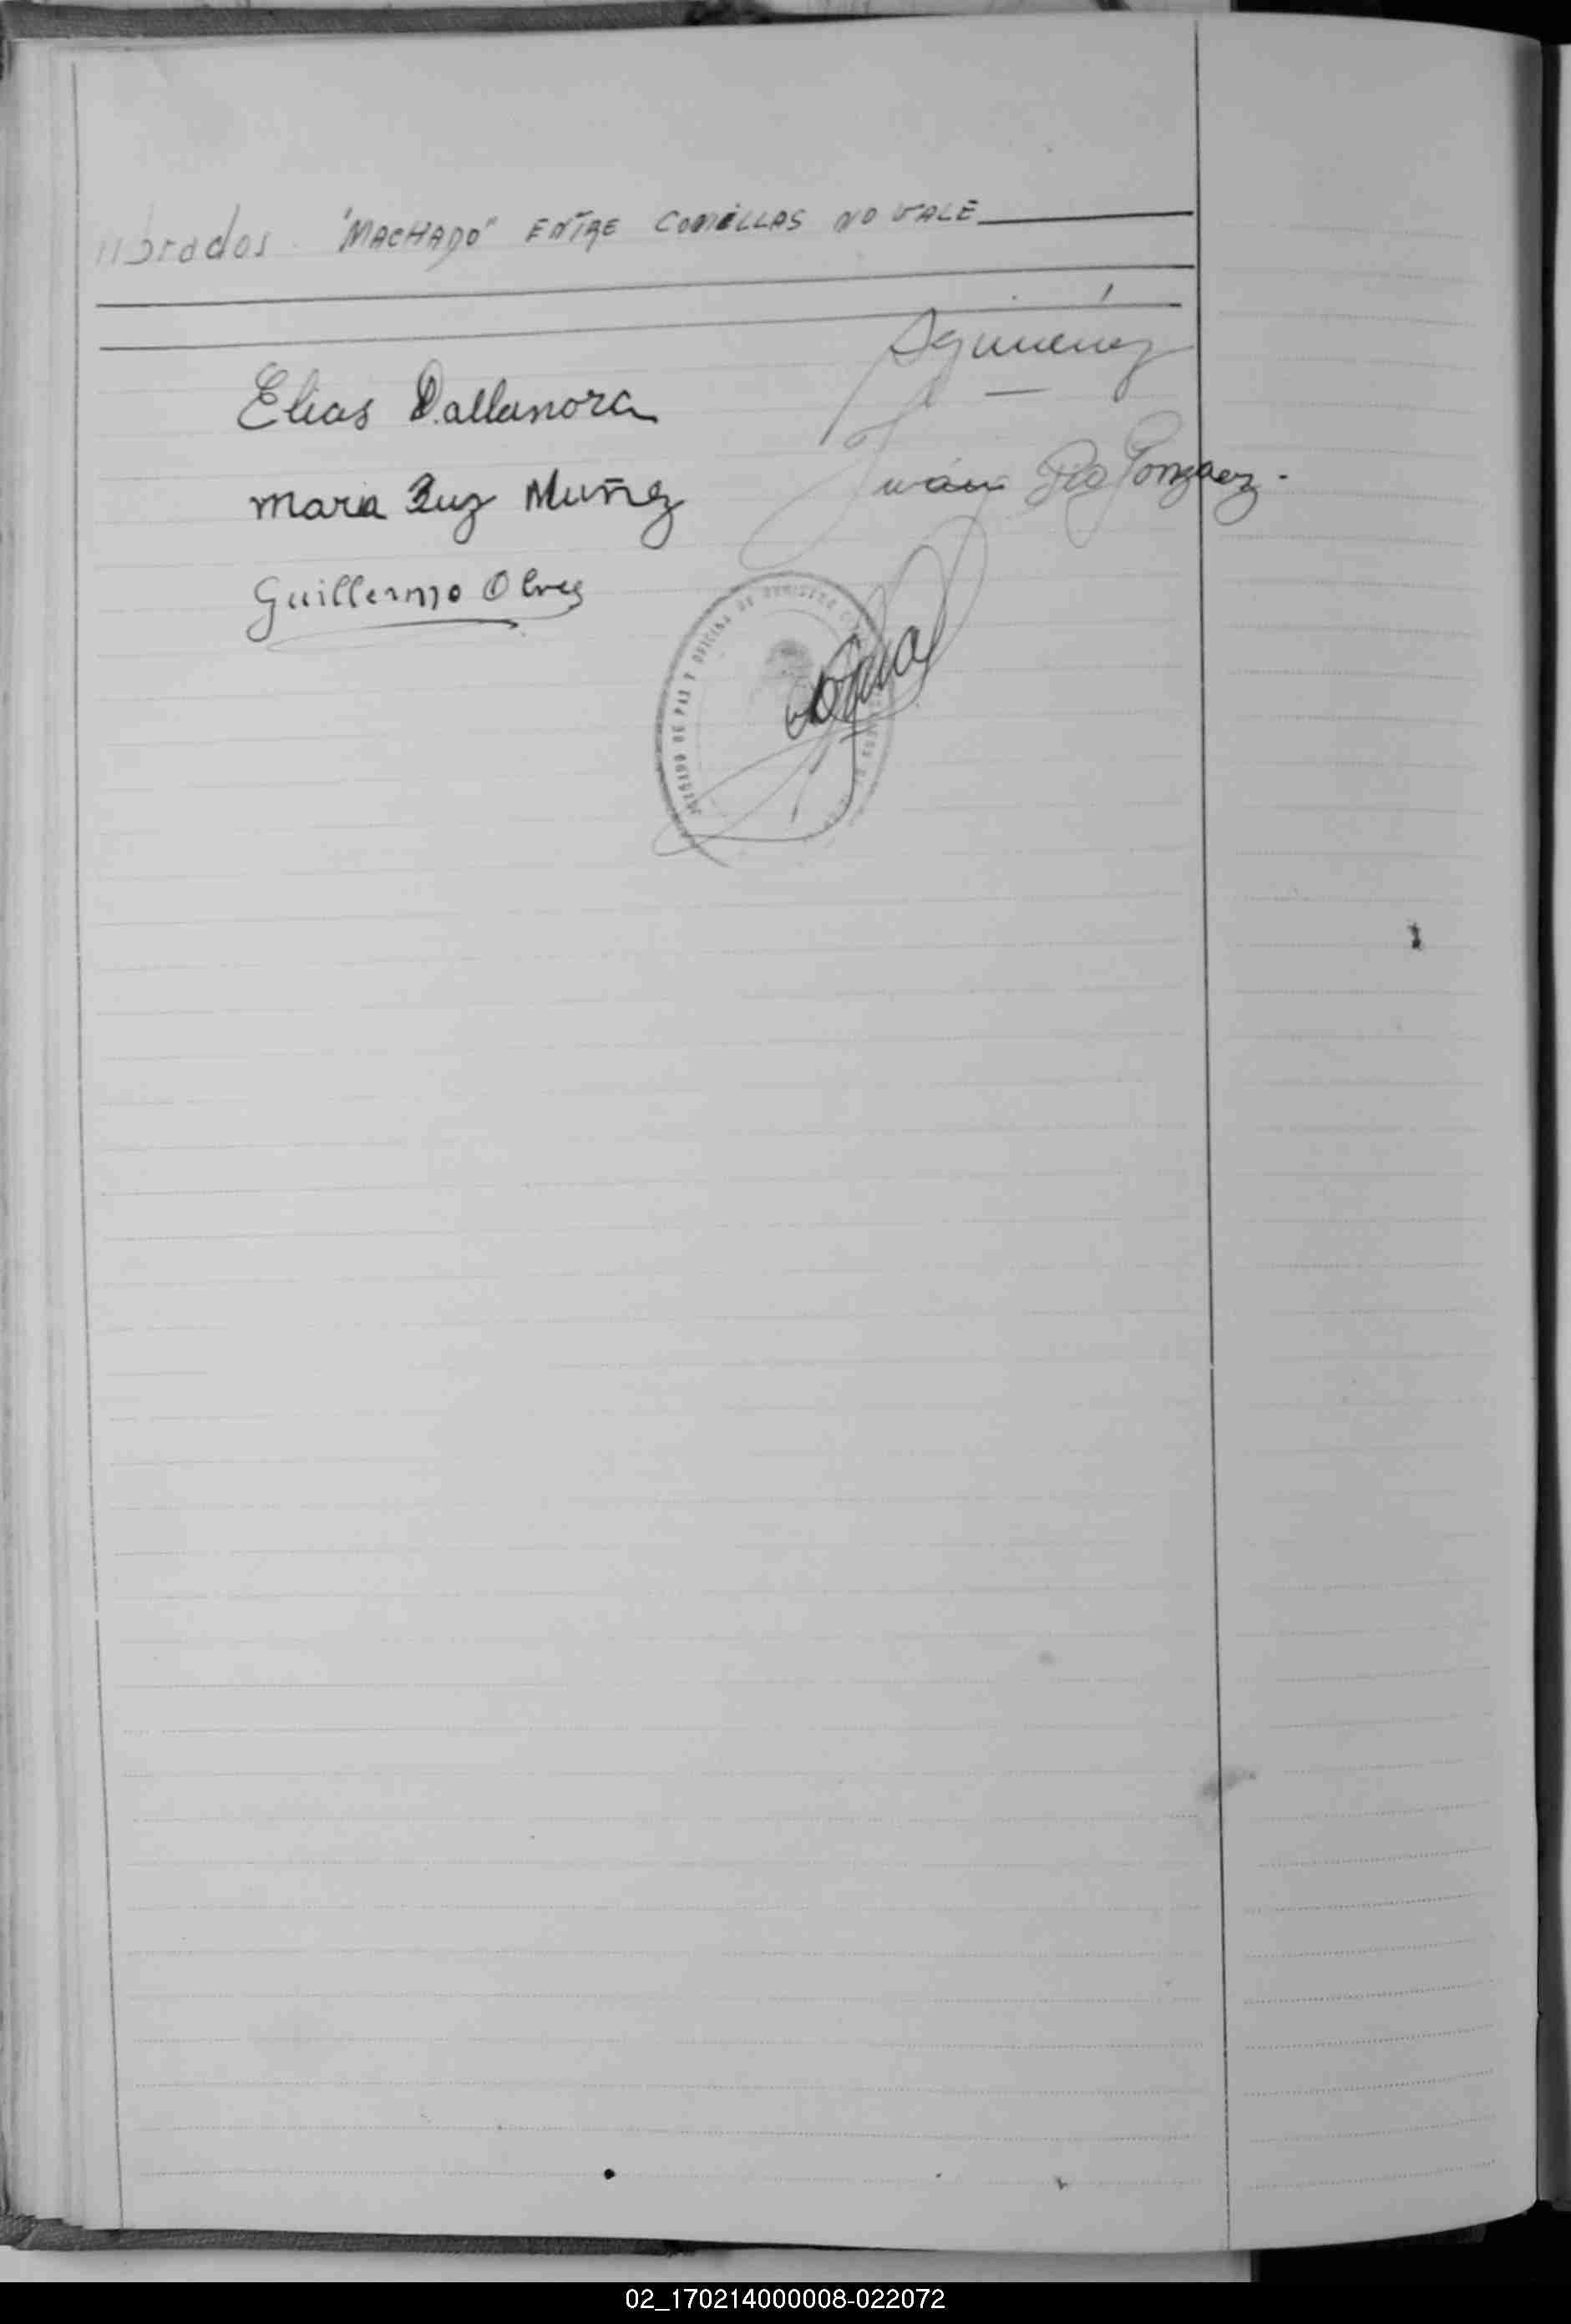 "MACHADO" ENTRE COMILLAS NO VALE
Elias Dallanora
Maria Luz Muñoz
Guillermo Olves
Agimenez
Juan Pio Gonzaez.
JUZGADO DE PAZ Y OFICINA DE REGISTRO
02_170214000008-022072